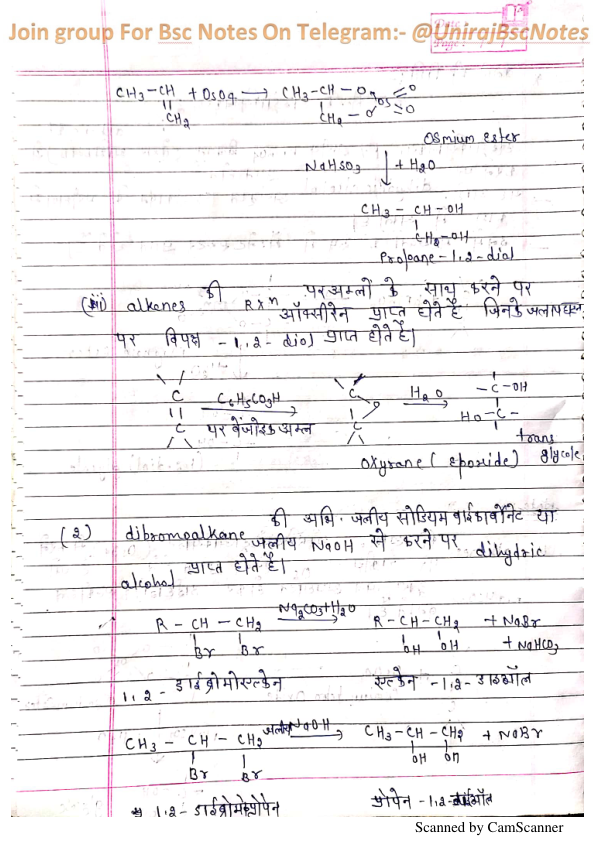 Join group For Bsc Notes On Telegram:- @UnirajBscNotes
CH3-CH + OsO4 → CH3-CH-O
CH2 CH2-O Os =O =O
Osmium ester
NaHSO3 ↓ + H2O
CH3 - CH-OH
CH2-OH
Propane-1,2-diol
(iii) alkenes की Rxn पर अम्लों के साथ करने पर
ऑक्सीरेन प्राप्त होते है जिनके जलापघटन
पर विपक्ष -1,2-diol प्राप्त होते है।
C C -C-OH
|| C6H5CO3H → O H2O →
C पर बेंजोइक अम्ल C HO-C-
trans
oxyrane (epoxide) glycole
(2) dibromoalkane की अभि. जलीय सोडियम बाईकार्बोनेट या
जलीय NaOH से करने पर dihydric
alcohol प्राप्त होते है।
R - CH - CH2 Na2CO3+H2O → R-CH-CH2 + NaBr
Br Br OH OH + NaHCO3
1,2-डाईब्रोमोएल्केन एल्केन -1,2- डाइऑल
CH3 - CH - CH2 जलीय NaOH → CH3-CH-CH2 + NaBr
Br Br OH OH
1,2-डाईब्रोमोप्रोपेन प्रोपेन -1,2-डाइऑल
Scanned by CamScanner